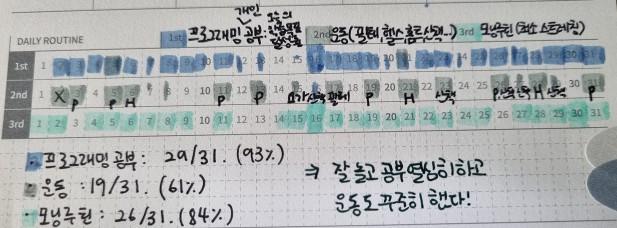 개인 오늘의
DAILY ROUTINE 1st 프로그래밍 공부: 달성률 2nd 운동(필테, 헬스, 홈트, 산책..) 3rd 모닝루틴 (최소 스트레칭)
1st 1 2 3 4 5 6 7 8 9 10 11 12 13 14 15 16 17 18 19 20 21 22 23 24 25 26 27 28 29 30 31
2nd 1 X 3 4 5 6 7 8 9 10 11 12 13 14 15 16 17 18 19 20 21 22 23 24 25 26 27 28 29 30 31
P P H P P 요가 산책 필테 P H 산책 P 산책 H 산책 P
3rd 1 2 3 4 5 6 7 8 9 10 11 12 13 14 15 16 17 18 19 20 21 22 23 24 25 26 27 28 29 30 31
· 프로그래밍 공부 : 29/31. (93%)
· 운동 : 19/31. (61%)
· 모닝루틴 : 26/31. (84%)
⇒ 잘 놀고 공부 열심히 하고
운동도 꾸준히 했다!